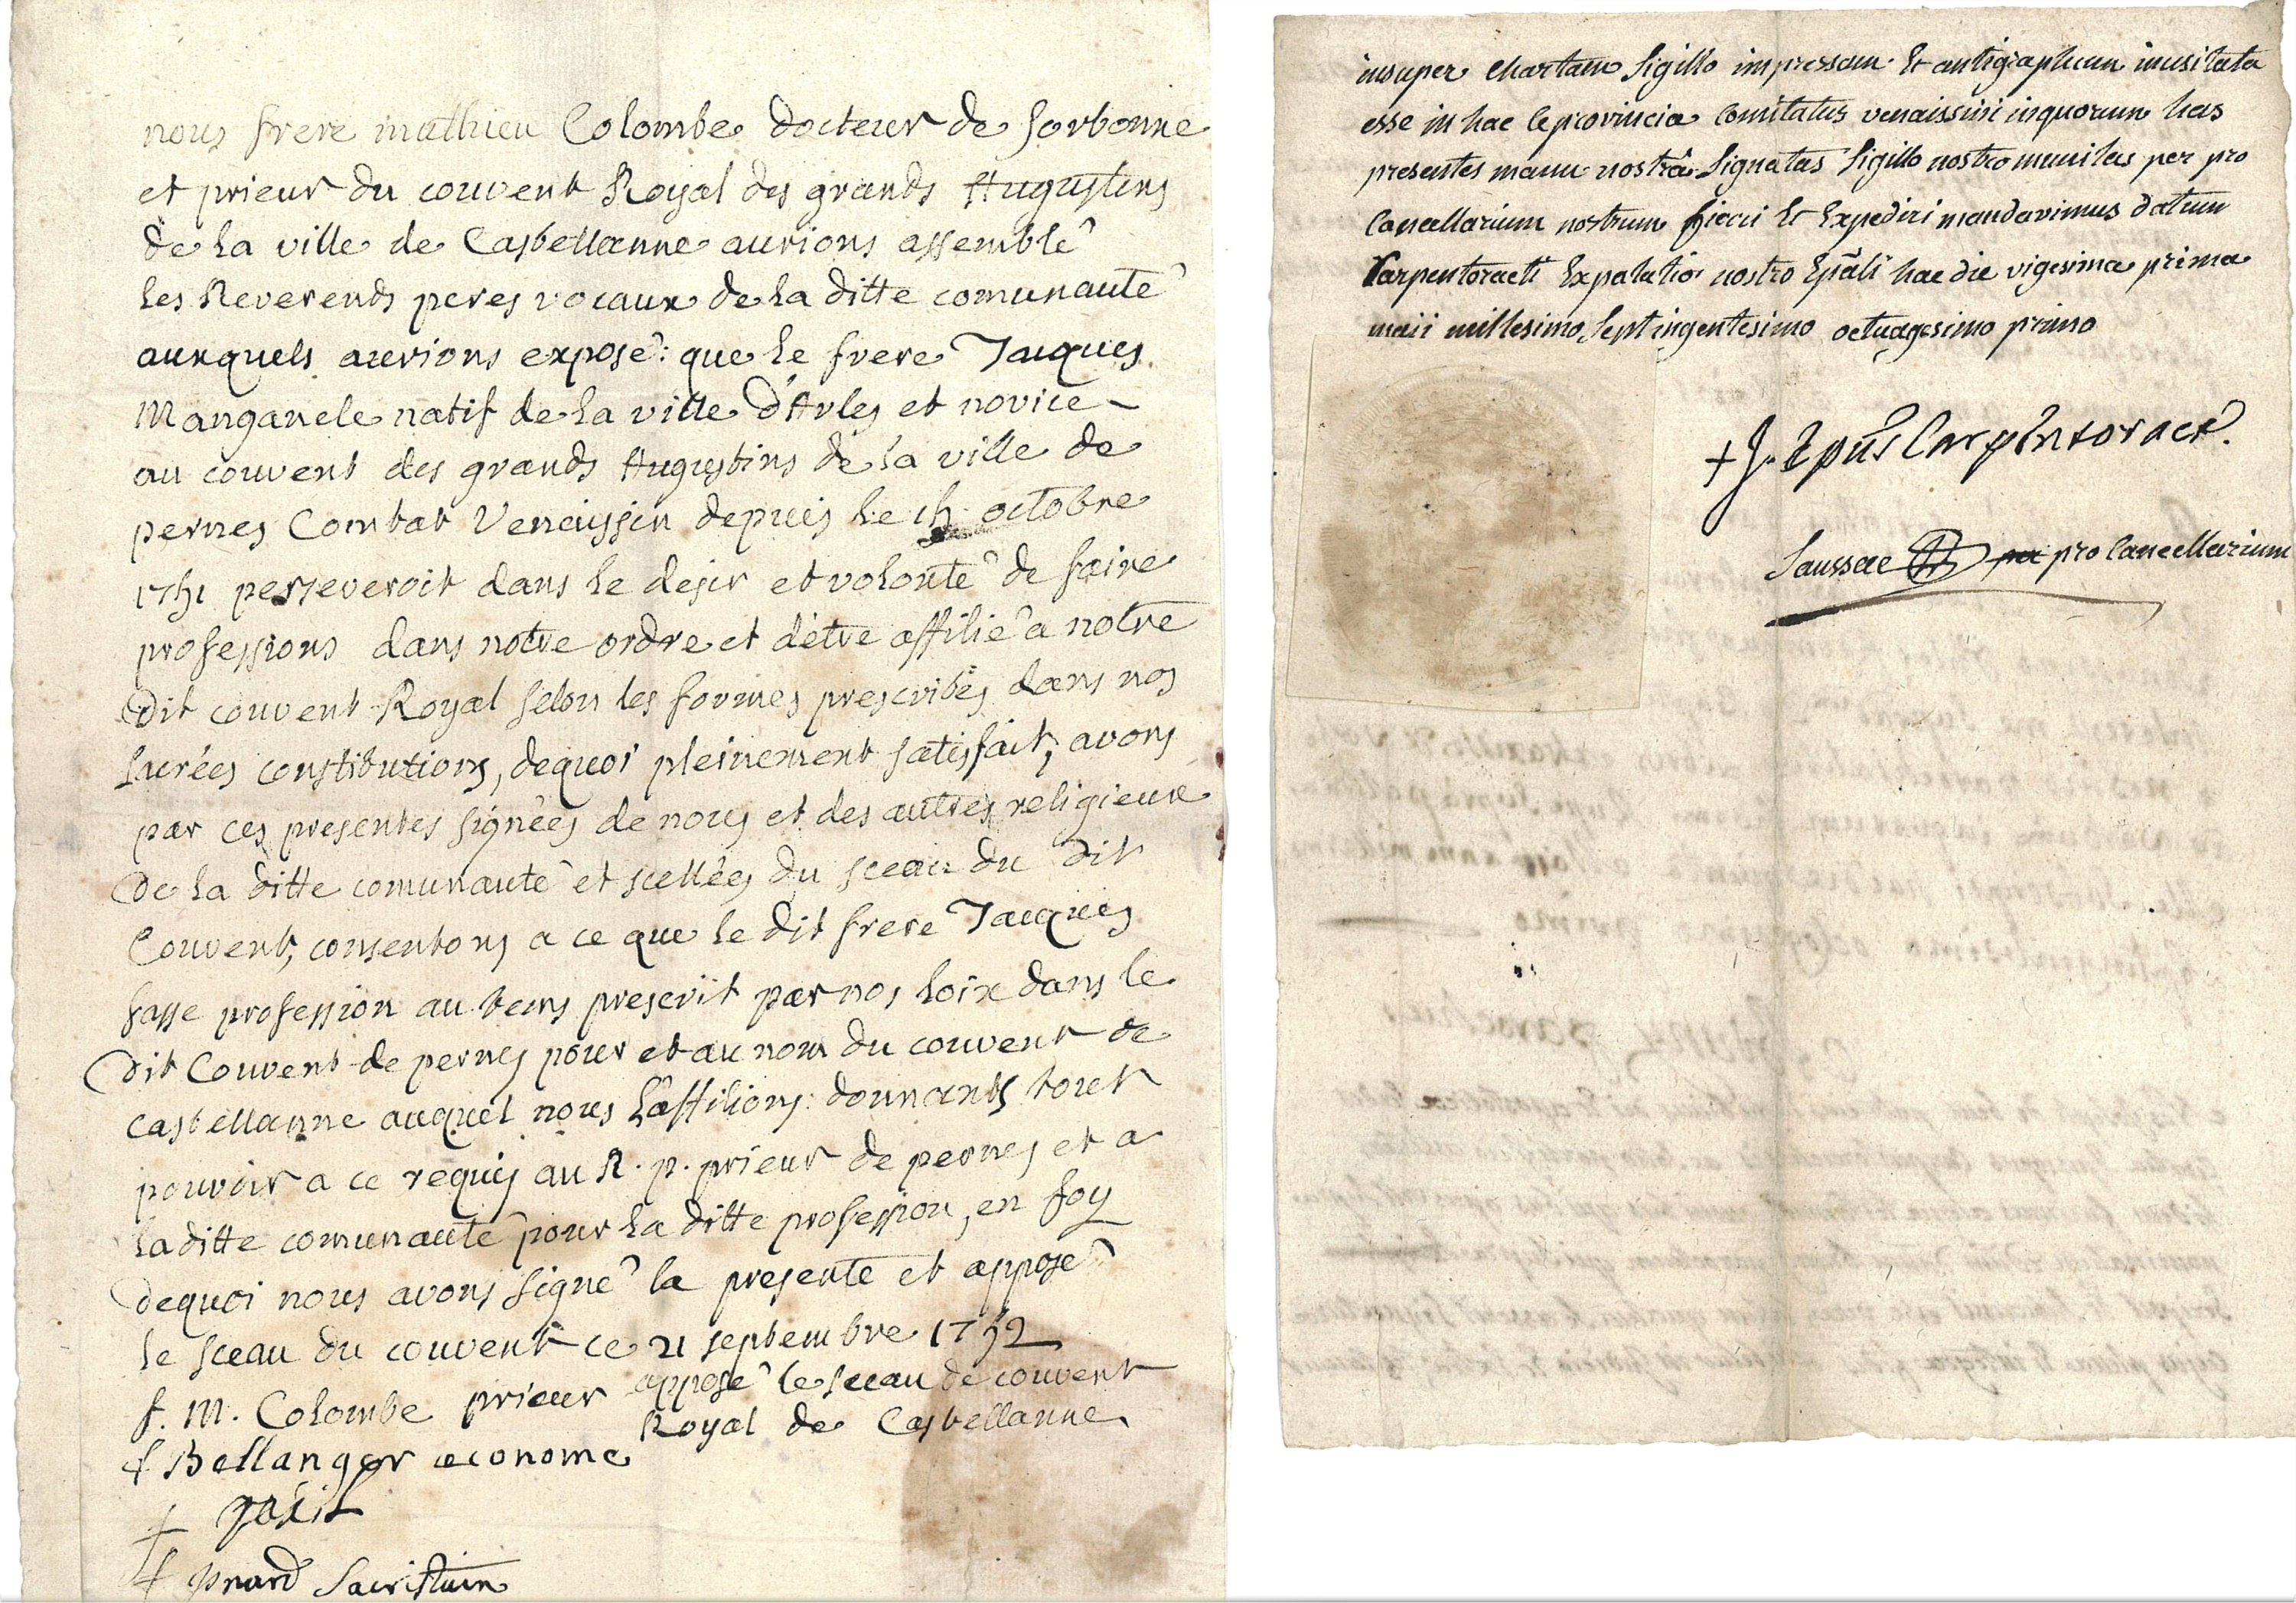 nous frere mathieu Colombe docteur de sorbonne
et prieur du couvent Royal des grands Augustins
de la ville de Castellanne aurions assemblé
les Reverends peres vocaux de la ditte comunauté
auxquels aurions exposé: que le frere Jacques
Manganele natif de la ville d'Arles et novice
au couvent des grands Augustins de la ville de
pernes Comtat Venaissin depuis le octobre
perseveroit dans le desir et volonté de faire
professions dans notre ordre et détre affilié a notre
dit couvent Royal selon les formes prescrites dans nos
sacrées constitutions, dequoi pleinement satisfait, avons
par ces presentes signées de nous et des autres religieux
de la ditte comunauté et scellées du sceau du dit
Couvent, consentons a ce que le dit frere Jacques
fasse profession au tems prescrit par nos loix dans le
dit Couvent de pernes pour et au nom du couvent de
castellanne auquel nous l'affilions: donnants tout
pouvoir a ce requis au R. p. prieur de pernes et a
la ditte comunauté pour la ditte profession, en foy
dequoi nous avons signé la presente et apposé
le sceau du couvent ce 21 septembre 1752
f. M. Colombe prieur apposé le sceau de couvent
Royal de Castellanne
f Bellanger œconome
f
f sacristain
insuper chartam sigillo impressam et antigraphum inusitata
esse in hac provincia Comitatus venaissini inquorum has
presentes manu nostrâ signatas sigillo nostro munitas per pro
Cancellarium nostrum fieri et Expediri mandavimus datum
Carpentoracti Expalatio nostro Epāli hac die vigesima prima
maii millesimo septingentesimo octuagesimo primo
+ J. Epūs Carpentoract.
Saussac pro Cancellarium